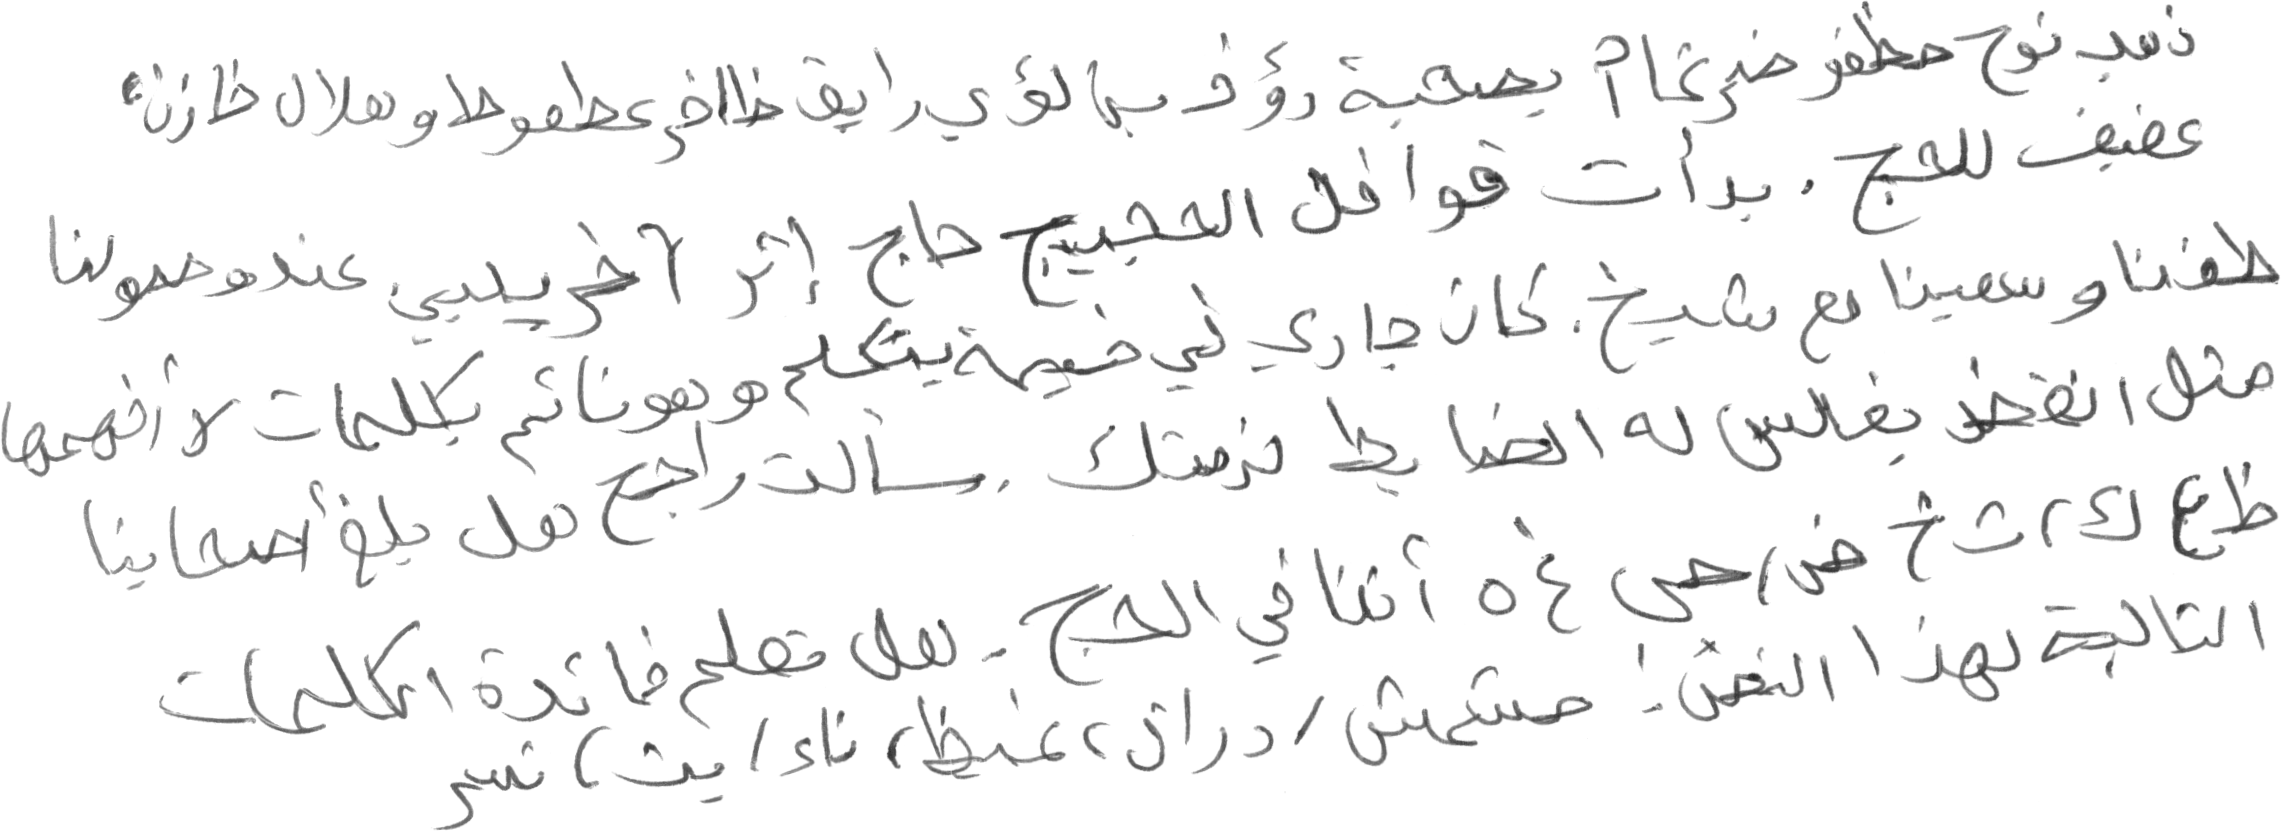 ذهب نوح مظفر ضرغام بصحبة رؤوف بها لؤي رايق ظافر عطعوط وهلال خازن
عفيف للحج. بدأت قوافل الحجيج حاج إثر آخر يلبي عند وصولنا
طفنا وسعينا مع شيخ. كان جاري في خيمة يتكلم وهو نائم بكلمات لا أفهمها
مثل انقض بغالس له الضابط نزهتك. سألت راجح هل بلغ أصحابنا
ظ ع ك م ث خ ض ص ى غ ه أننا في الحج. هل تعلم فائدة الكلمات
التالية لهذا النص: مشمش، دراق، غيظ، ناء، يث، نسر